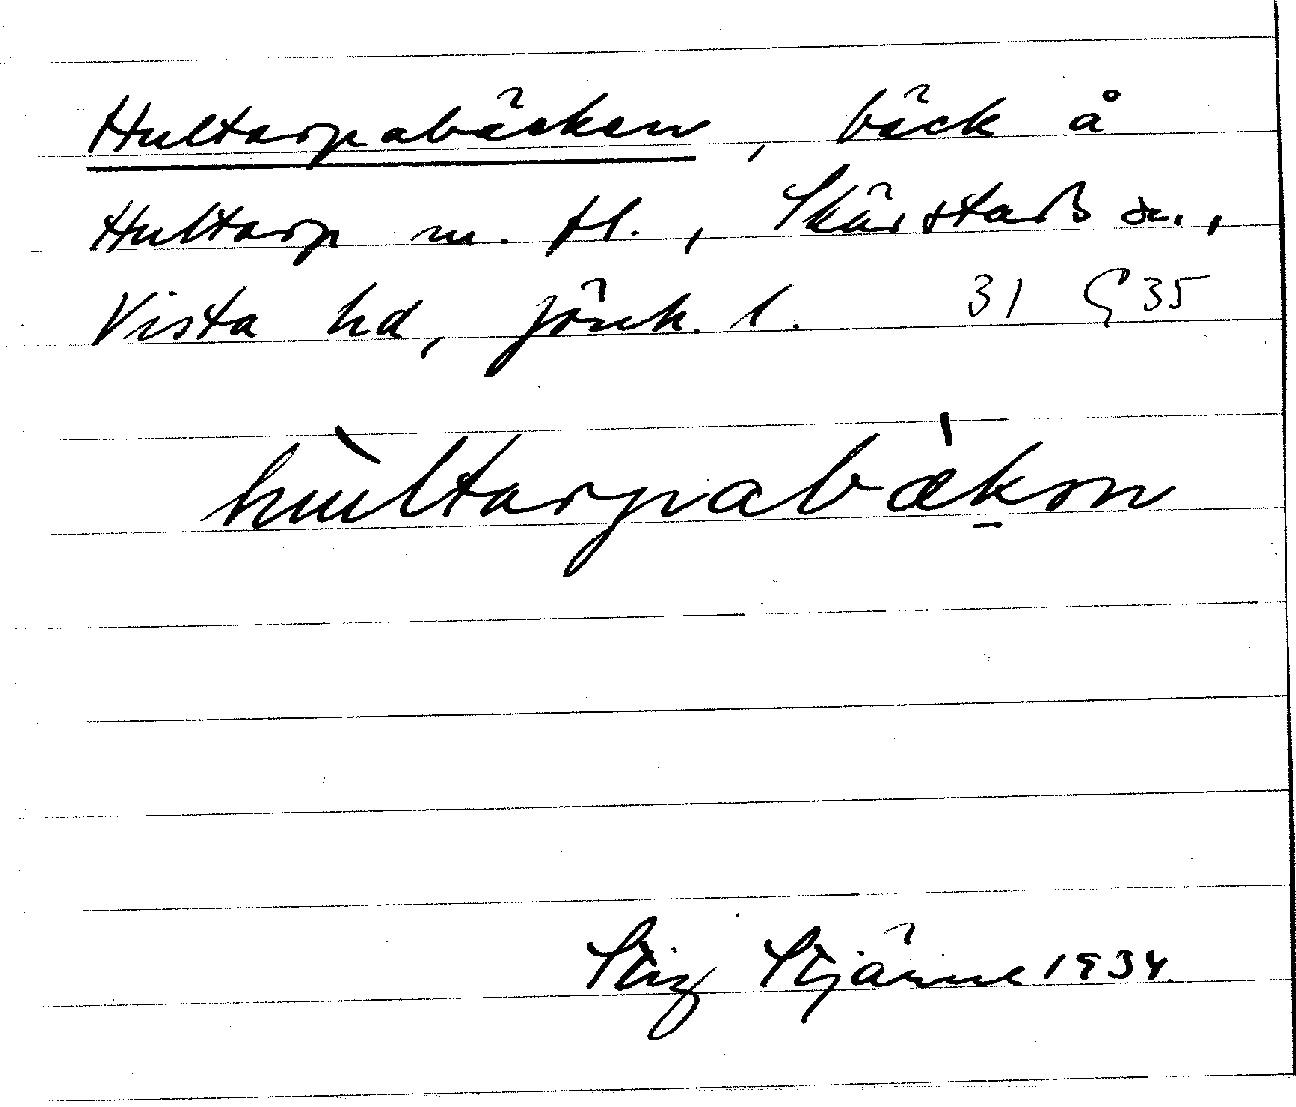 Hultarpabäcken, bäck å
Hultarp m. fl., Skärstads sn.,
Vista hd, Jönk. l. 31 Ç 35
hùltarpabækən
Stig Stjärne 1934